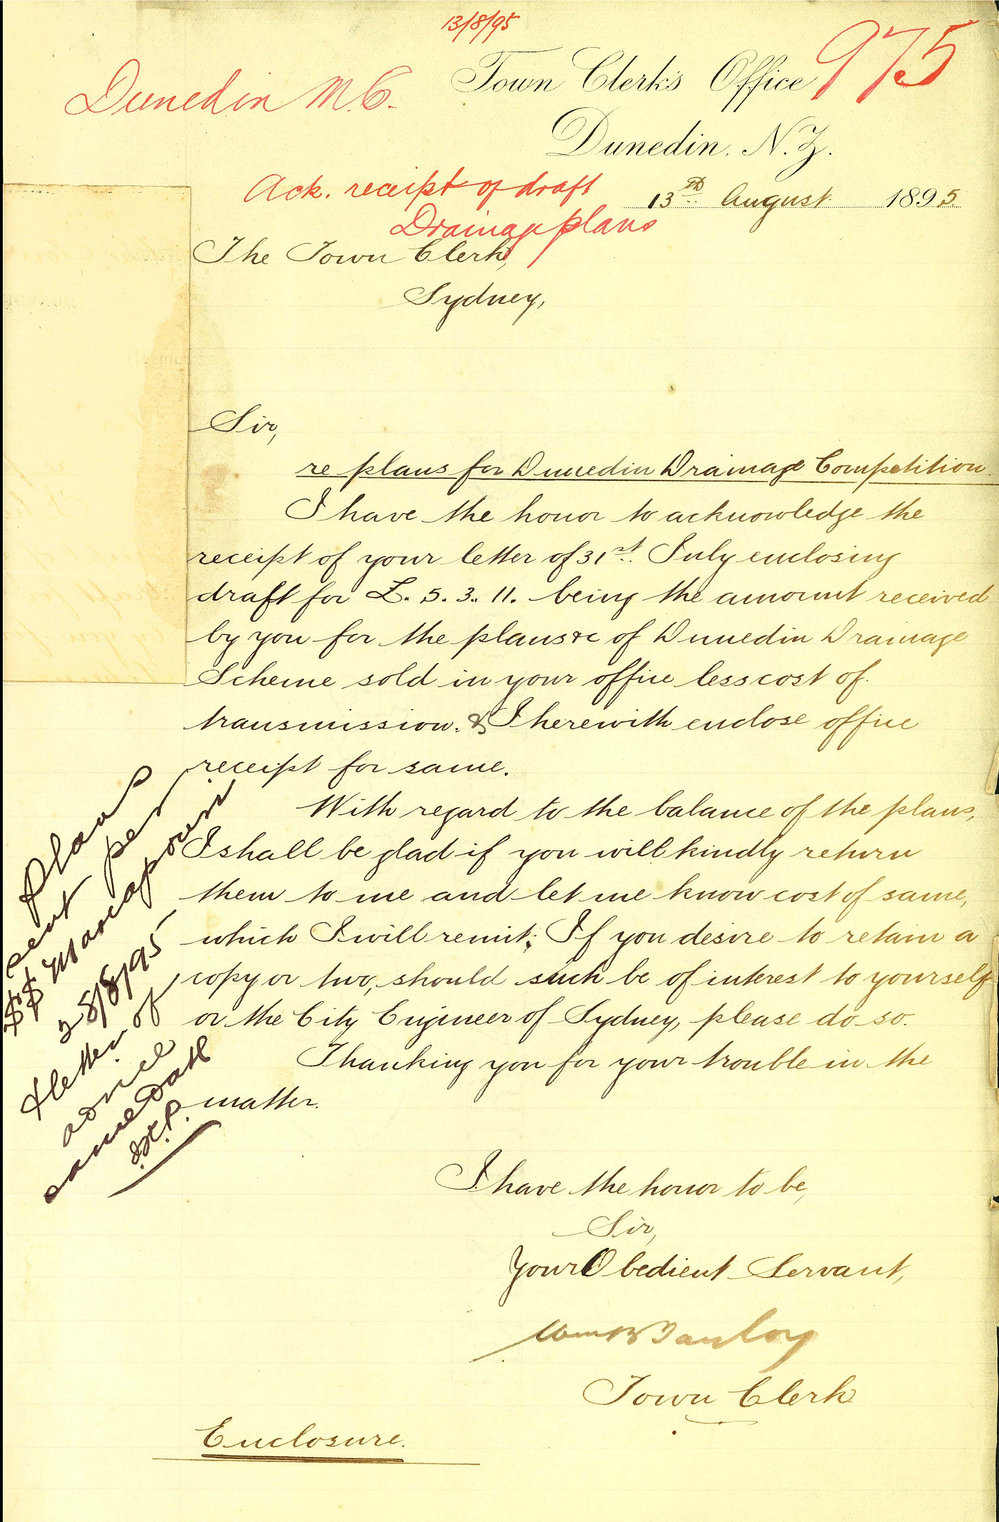 13/8/95
975
Dunedin M.C.
Town Clerk's Office
Dunedin. N.Z.
Ack. receipt of draft
Drainage plans
13th August 1895
The Town Clerk,
Sydney,
Sir,
re plans for Dunedin Drainage Competition.
I have the honor to acknowledge the
receipt of your letter of 31st. July enclosing
draft for £. 5. 3. 11. being the amount received
by you for the plans &c of Dunedin Drainage
Scheme sold in your office less cost of
transmission. & I herewith enclose office
receipt for same.
With regard to the balance of the plans,
I shall be glad if you will kindly return
them to me and let me know cost of same,
which I will remit; If you desire to retain a
copy or two, should such be of interest to yourself
or the City Engineer of Sydney, please do so.
Thanking you for your trouble in the
matter.
Plans
sent per
SS Manapouri
28/8/95
& letter of
advice
same date
I have the honor to be,
Sir,
Your Obedient Servant,
Town Clerk
Enclosure.